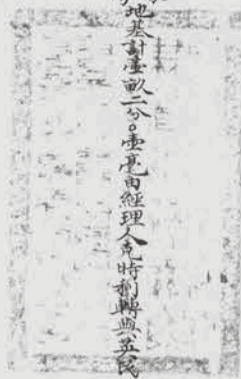 地基計壹畝二分〇壹毫由經理人克時利轉與英民